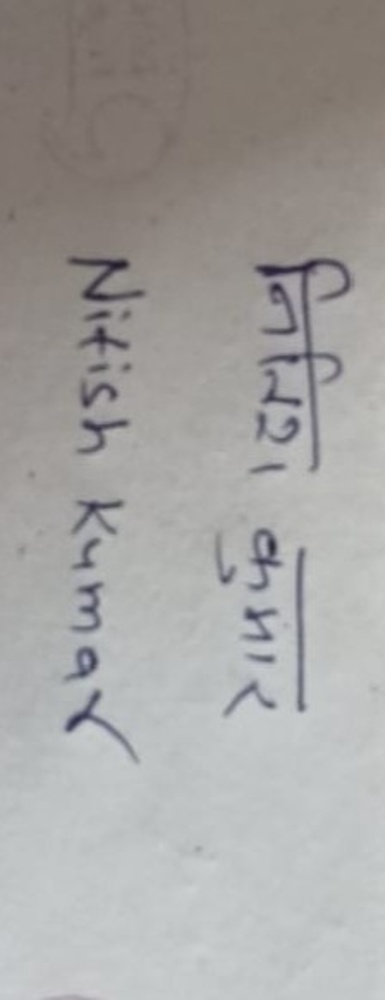 नितिश कुमार
Nitish Kumar